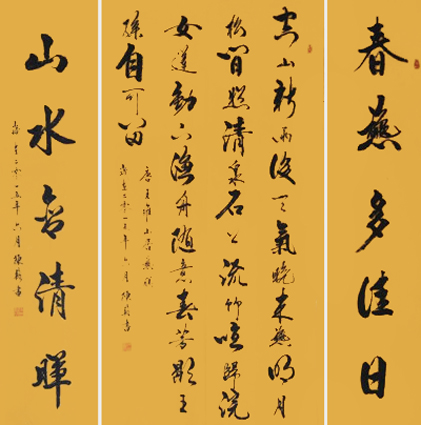 春秋多佳日
空山新雨後天氣晚来秋明月
松間照清泉石上流竹喧歸浣
女蓮動下漁舟随意春芳歇王
孫自可留
唐王維山居秋暝
歲在二零一五年六月陳書
山水含清暉
歲在二零一五年六月陳書